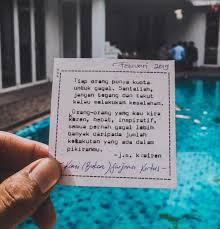 Februari 2019
Tiap orang punya kuota
untuk gagal. Santailah,
jangan tegang dan takut
kalau melakukan kesalahan.
Orang-orang yang kau kira
keren, hebat, inspiratif,
semua pernah gagal lebih
banyak daripada jumlah
ketakutan yang ada dalam
pikiranmu.
-j.s. khairen
Kami (Bukan) Sarjana Kertas -